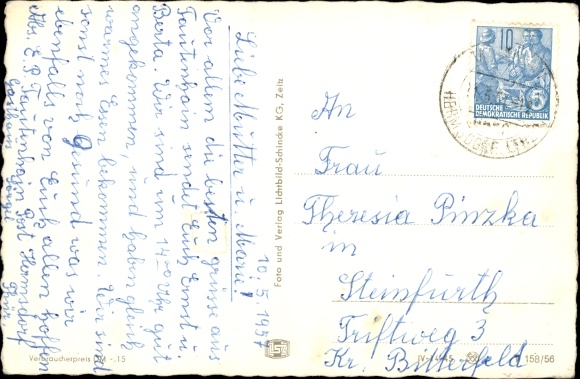 10.5.1957
Liebe Mutter u. Marie!
Vor allem die besten Grüsse aus
Tautenhain sendet Euch Ernst u.
Berta. Wir sind um 14-00 Uhr gut
angekommen, und haben gleich
warmes Essen bekommen. Wir sind
sonst noch Gesund was wir
ebenfalls von Euch allen hoffen
Abs. E.P. Tautenhain Post Hermsdorf
Gasthaus
Thür.
Verbraucherpreis DM -.15
Foto und Verlag Lichtbild-Schincke KG, Zeitz
10
DEUTSCHE
DEMOKRATISCHE REPUBLIK
5
An
Frau
Theresia Pinzka
in
Steinfurth
Triftweg 3
Kr. Bitterfeld
158/56